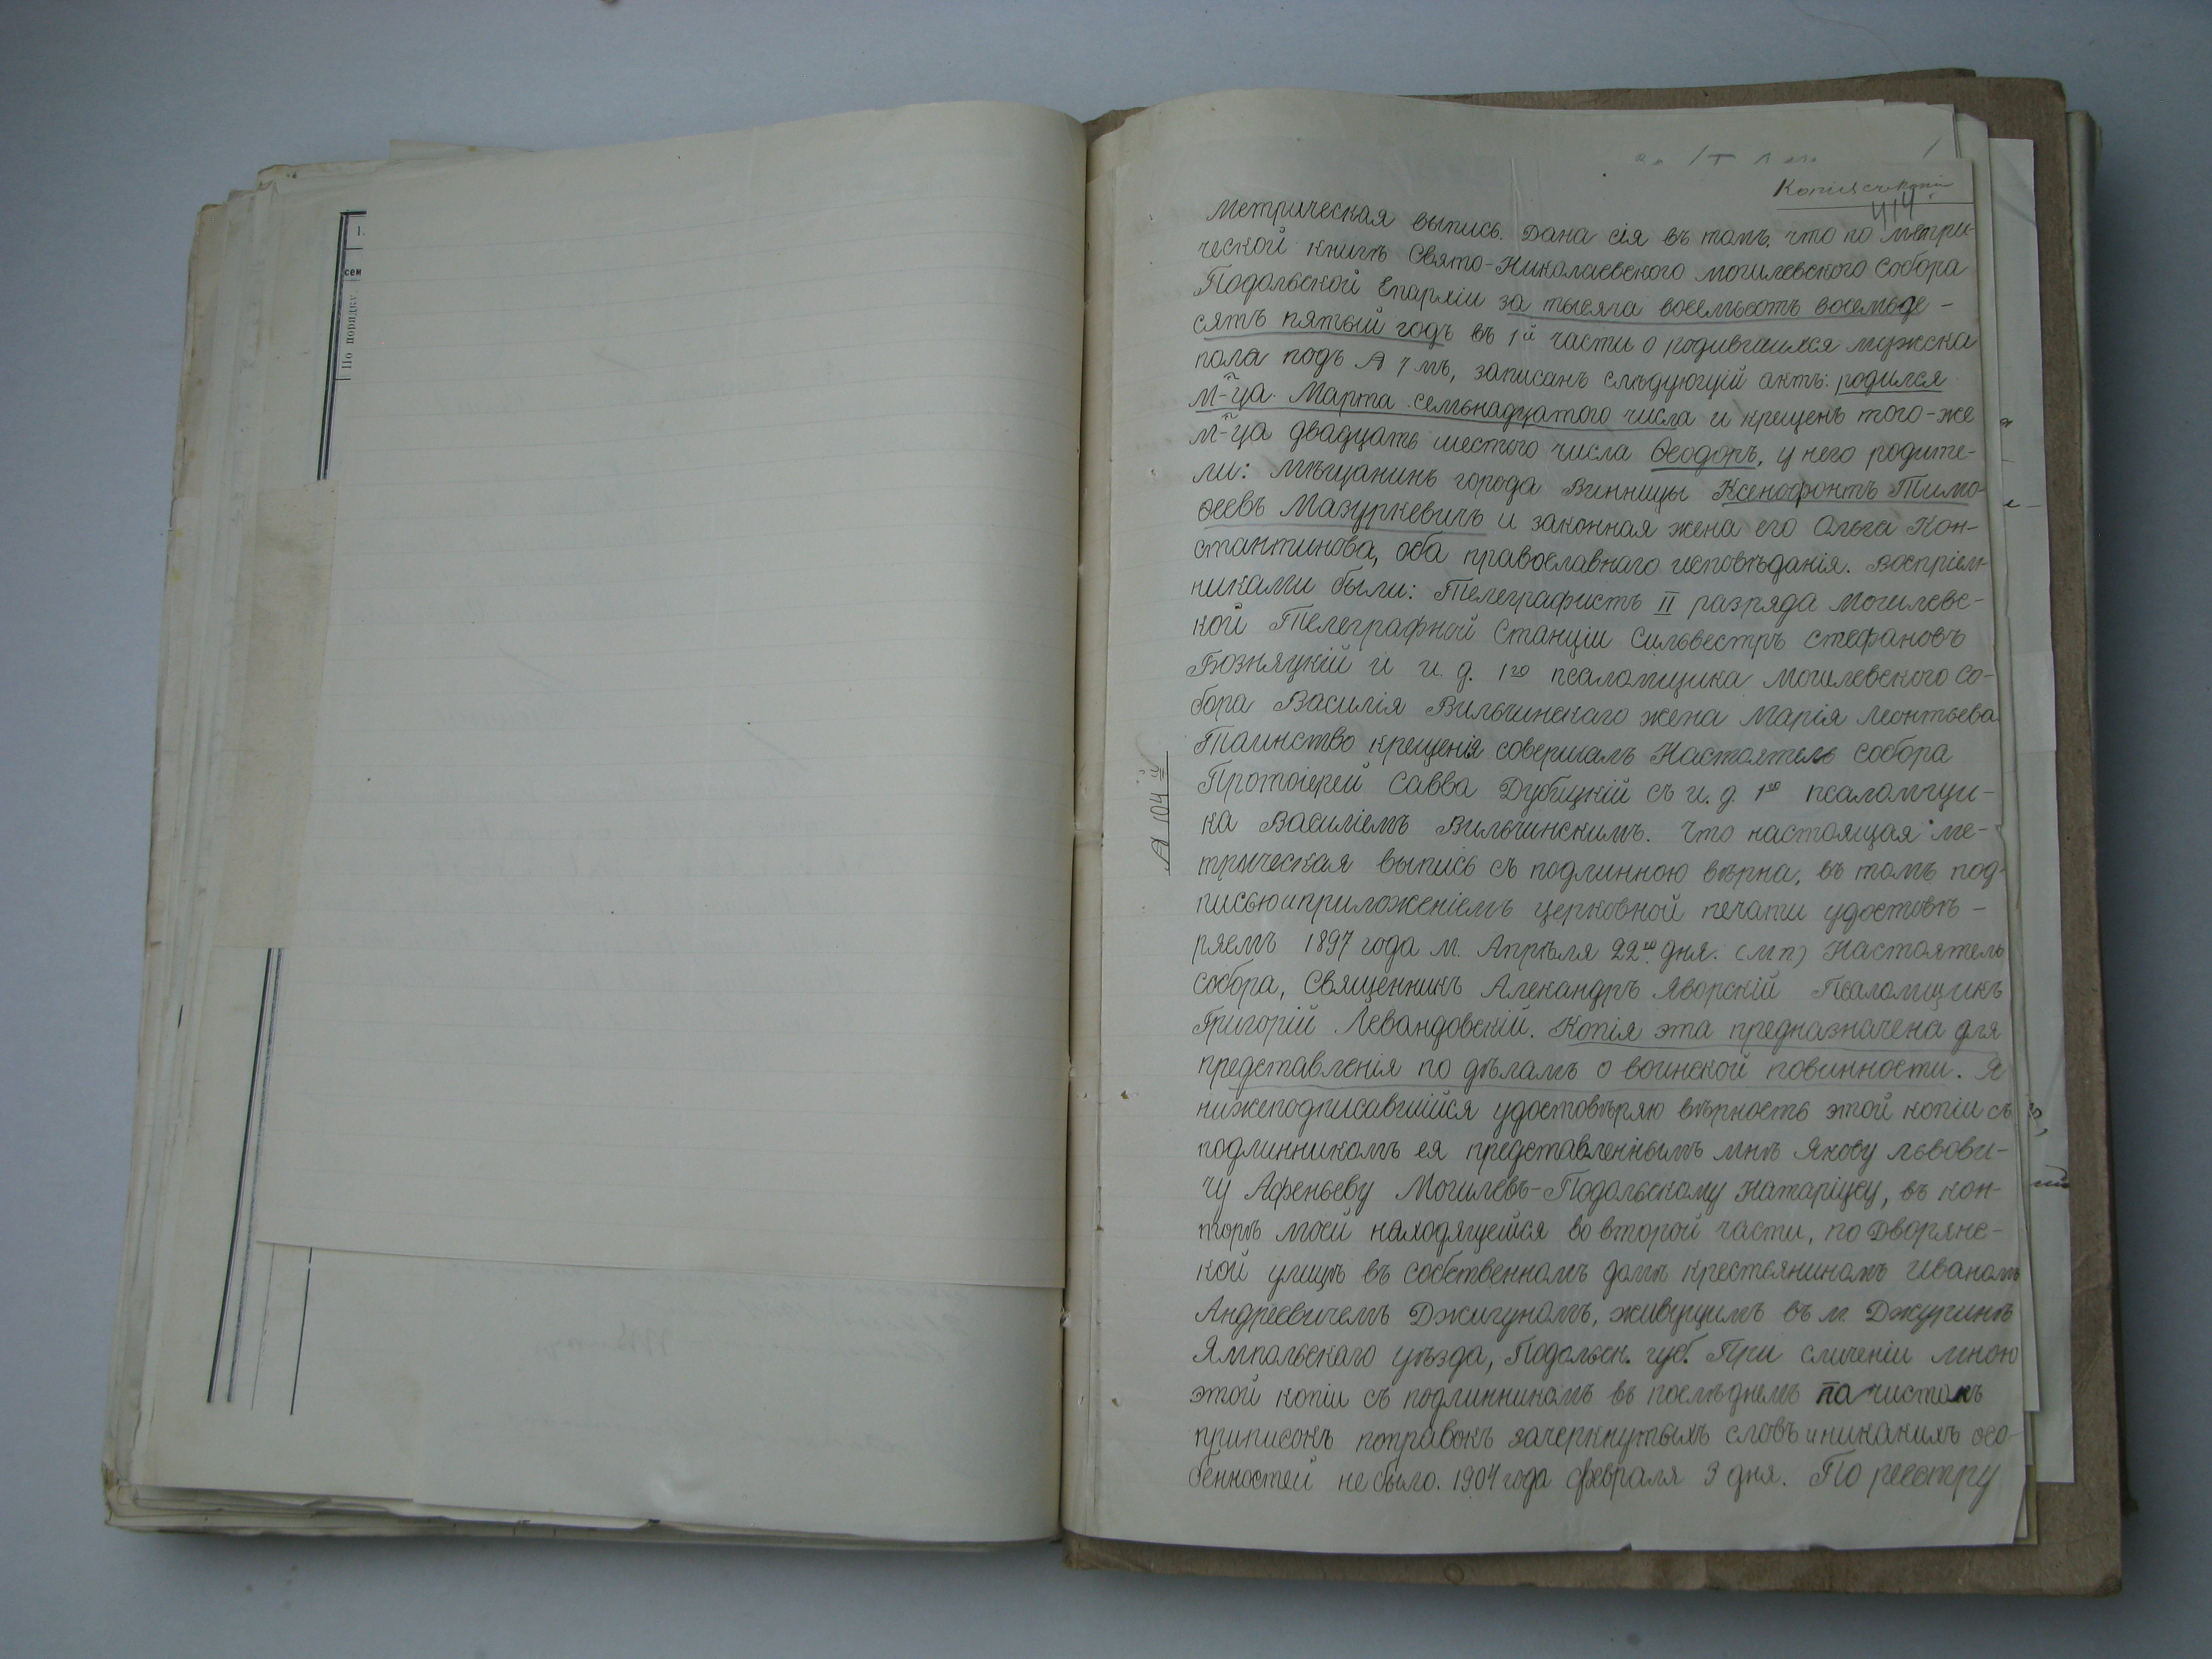 1.
сем
По порядку
Копія съ копіи
414
Метрическая выпись. Дана сія въ томъ, что по метри-
ческой книгѣ Свято-Николаевского Могилевского Собора
Подольской Епархіи за тысяча восемьсотъ восемьде-
сятъ пятый годъ въ 1й части о родившихся мужска
пола подъ № 7 мъ, записанъ слѣдующій актъ: родился
м-ца Марта семьнадцатого числа и крещенъ того-же
м-ца двадцать шестого числа Ѳеодоръ, у него родите-
ли: мѣщанинъ города Винницы Ксенофонтъ Тимо-
ѳеевъ Мазуркевичъ и законная жена его Ольга Кон-
стантинова, оба православнаго исповѣданія. Воспріем-
никами были: Телеграфистъ II разряда Могилевс-
кой Телеграфной Станціи Сильвестръ Стефановъ
Бозняцкій и и. д. 1го псаломщика Могилевского Со-
бора Василія Вильчинскаго жена Марія Леонтьева.
Таинство крещенія совершалъ Настоятель Собора
Протоіерей Савва Дубицкій съ и. д. 1го псаломщи-
ка Василіемъ Вильчинскимъ. Что настоящая ме-
трическая выпись съ подлинною вѣрна, въ томъ под-
писью и приложеніемъ церковной печати удостовѣ-
ряемъ 1897 года м. Апрѣля 22го дня. (мп) Настоятель
Собора, Священникъ Алекандръ Яворскій Псаломщикъ
Григорій Левандовскій. Копія эта предназначена для
представленія по дѣламъ о воинской повинности. Я
нижеподписавшійся удостовѣряю вѣрность этой копіи съ
подлинникомъ ея представленнымъ мнѣ Якову Львови-
чу Афеньеву Могилевъ-Подольскому Натаріусу, въ кон-
торѣ моей находящейся во второй части, по Дворянс-
кой улицѣ въ собственномъ домѣ крестьяниномъ Иваномъ
Андреевичемъ Джигуномъ, живущимъ въ м. Джуринѣ
Ямпольскаго уѣзда, Подольск. губ. При сличеніи мною
этой копіи съ подлинникомъ въ послѣднемъ почистокъ
приписокъ поправокъ зачеркнутыхъ словъ и никакихъ осо-
бенностей не было. 1904 года Февраля 9 дня. По реестру
№ 104й